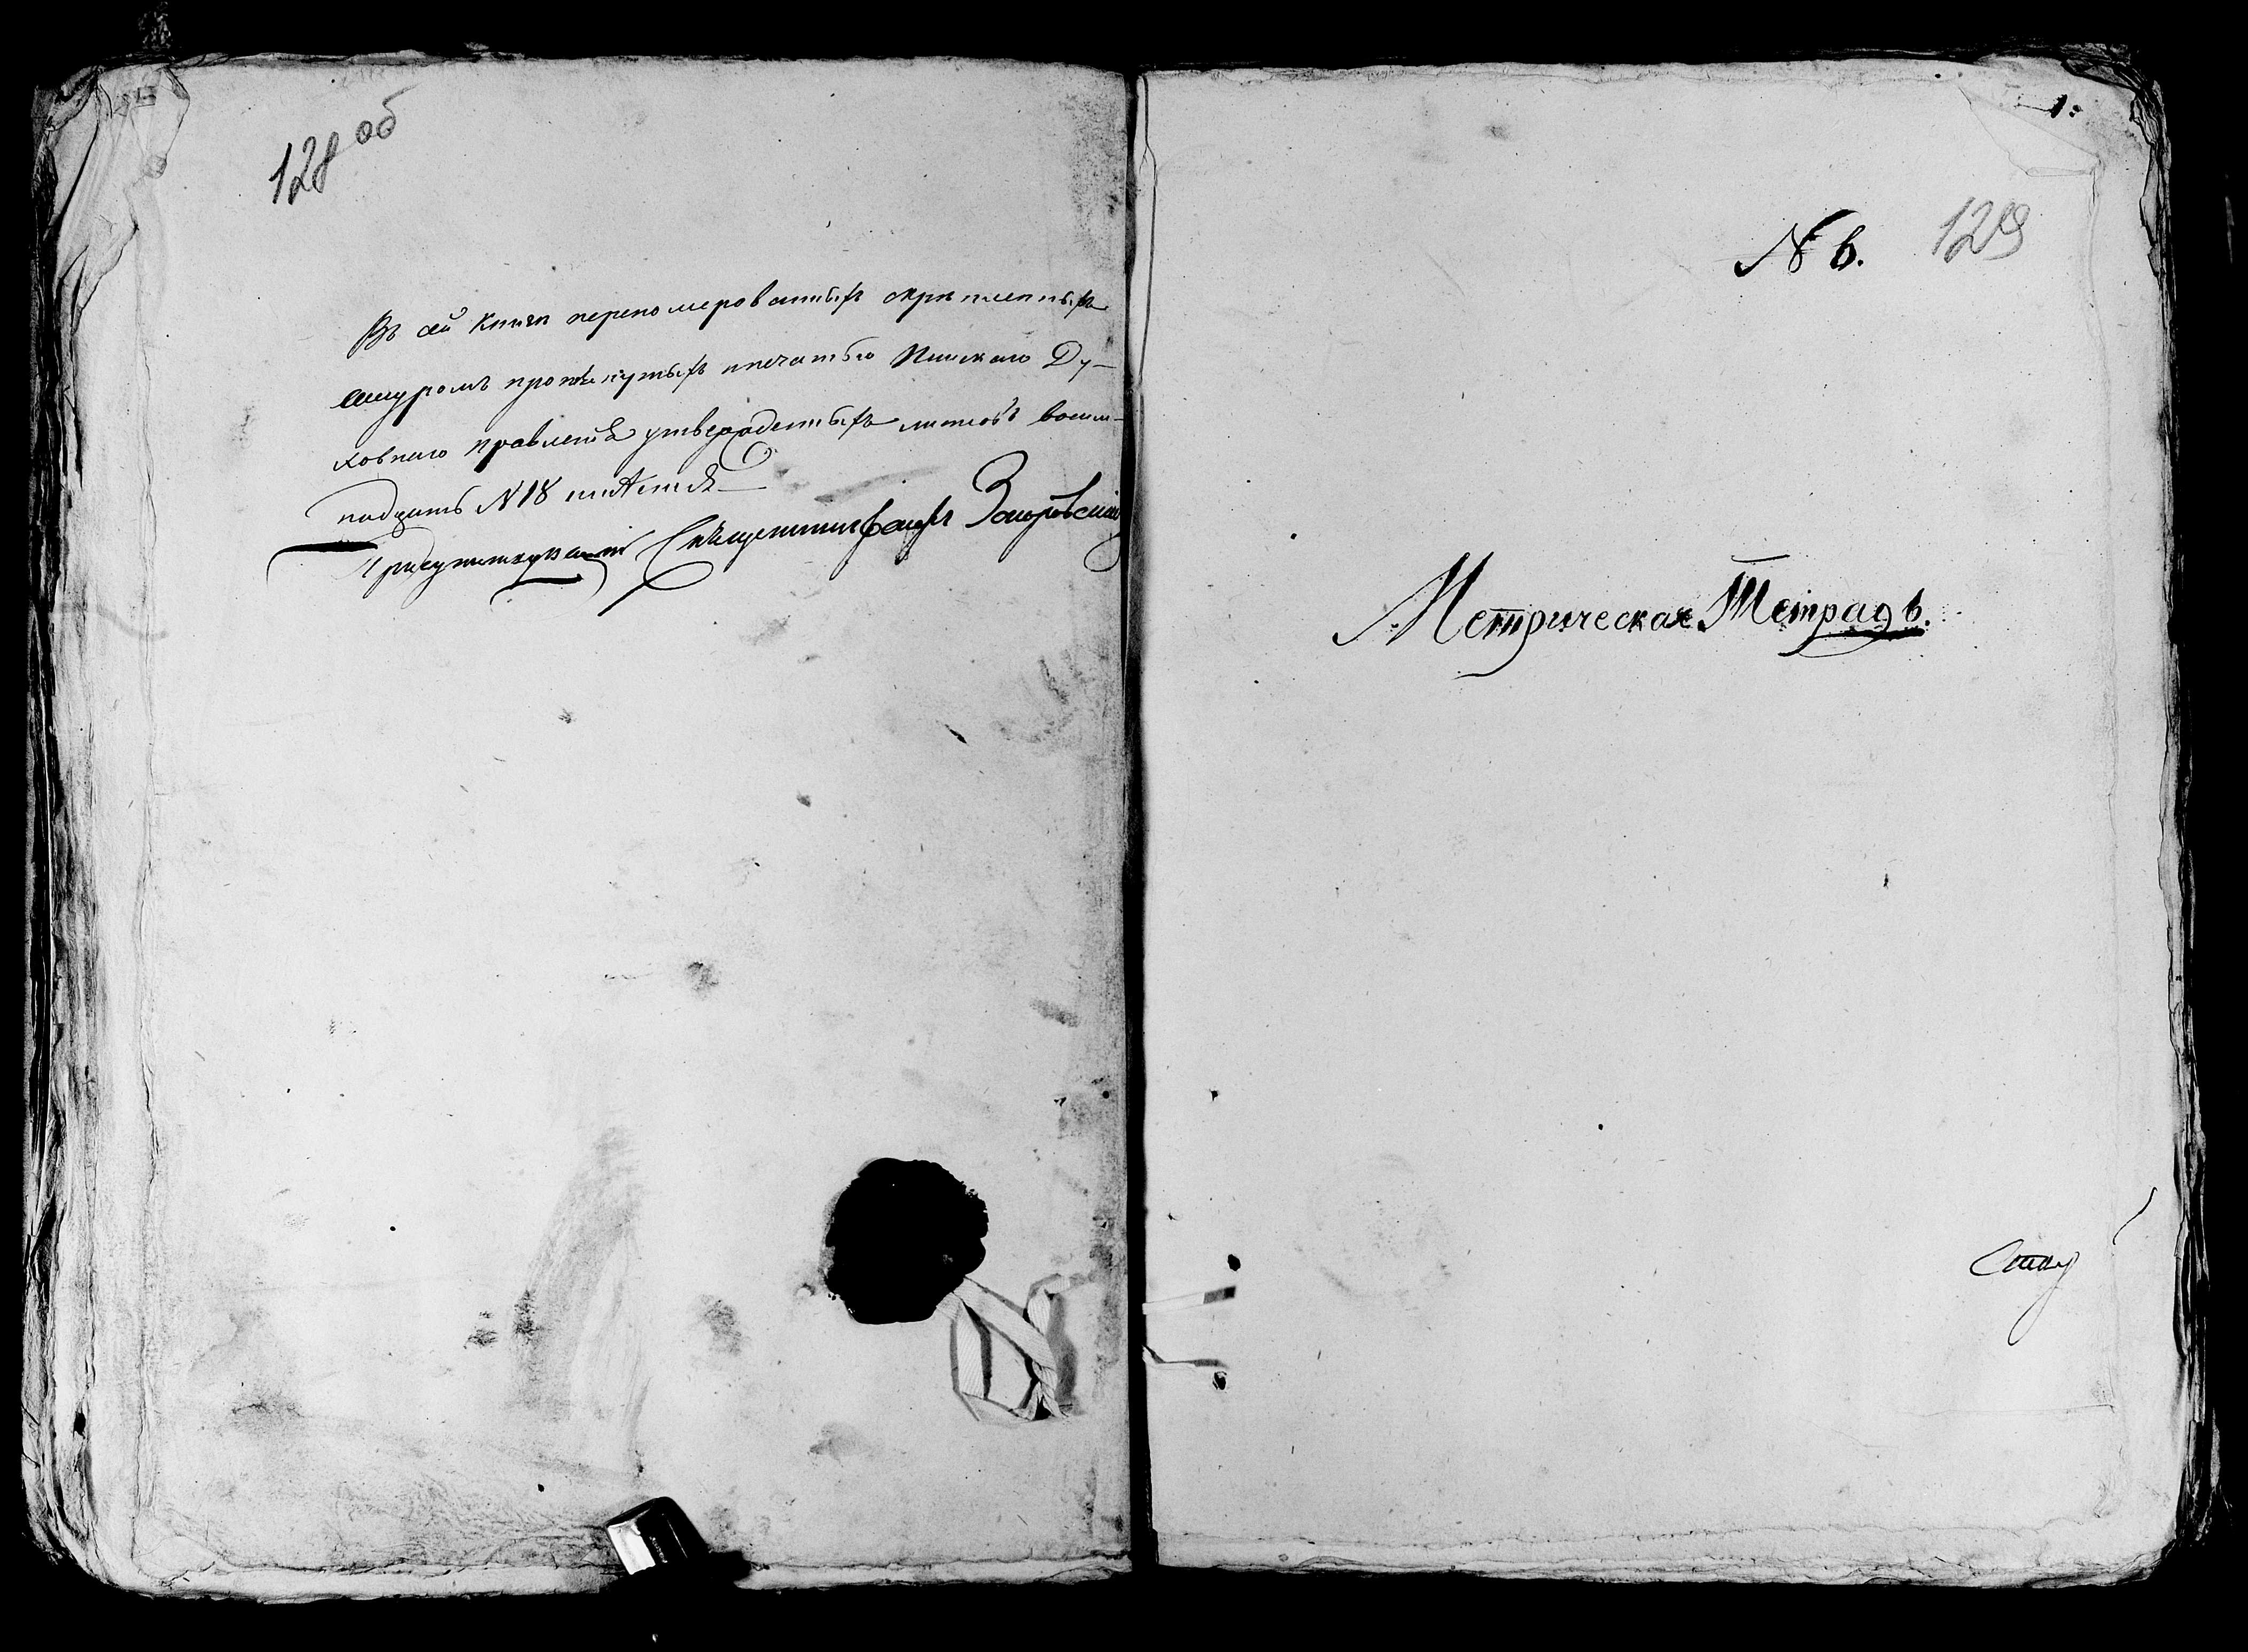 128 об
Въ сей Книги перенумерованныхъ скрѣпленныхъ
шнуромъ протянутыхъ и печатью Пинскаго Ду–
ховнаго Правленія утвержденныхъ листовъ восем–
надцать №18
Присутствующій Священник Захоровскій
1:
№ 6.
129
Метрическая Тетрадь.